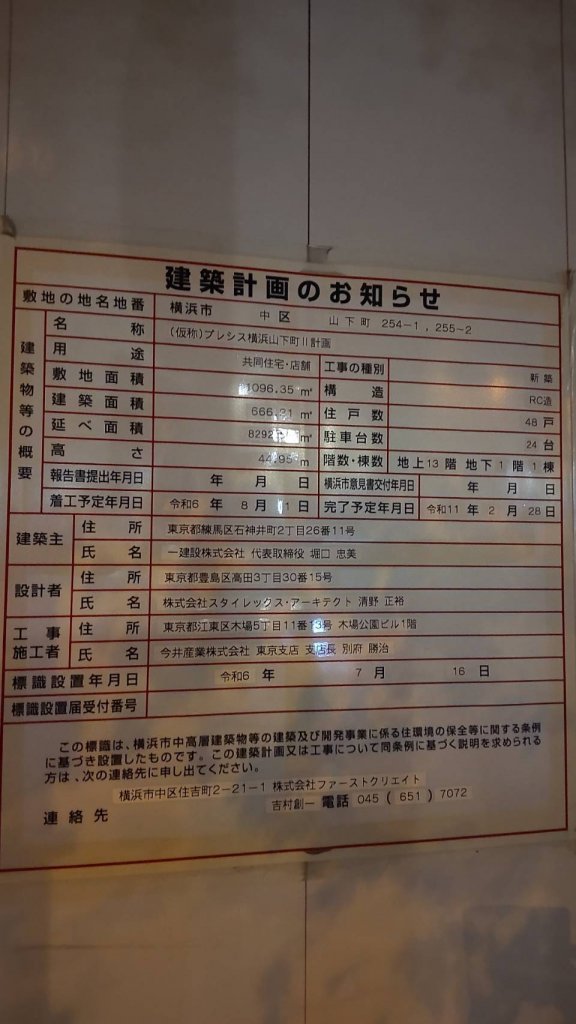 建築計画のお知らせ
敷地の地名地番 横浜市 中区 山下町 254-1，255-2
建築物等の概要
名称 (仮称)プレシス横浜山下町Ⅱ計画
用途 共同住宅・店舗 工事の種別 新築
敷地面積 1096.35 ㎡ 構造 RC造
建築面積 666.31 ㎡ 住戸数 48 戸
延べ面積 8292 ㎡ 駐車台数 24 台
高さ 44.95 m 階数・棟数 地上13階 地下1階1棟
報告書提出年月日 年 月 日 横浜市意見書交付年月日 年 月 日
着工予定年月日 令和6 年 8 月 1 日 完了予定年月日 令和11 年 2 月 28 日
建築主 住所 東京都練馬区石神井町2丁目26番11号
氏名 一建設株式会社 代表取締役 堀口 忠美
設計者 住所 東京都豊島区高田3丁目30番15号
氏名 株式会社スタイレックス・アーキテクト 清野 正裕
工事施工者 住所 東京都江東区木場5丁目11番13号 木場公園ビル1階
氏名 今井産業株式会社 東京支店 支店長 別府 勝治
標識設置年月日 令和6 年 7 月 16 日
標識設置届受付番号
この標識は、横浜市中高層建築物等の建築及び開発事業に係る住環境の保全等に関する条例
に基づき設置したものです。この建築計画又は工事について同条例に基づく説明を求められる
方は、次の連絡先に申し出てください。
横浜市中区住吉町2-21-1 株式会社ファーストクリエイト
連絡先 吉村創一 電話 045 ( 651 ) 7072